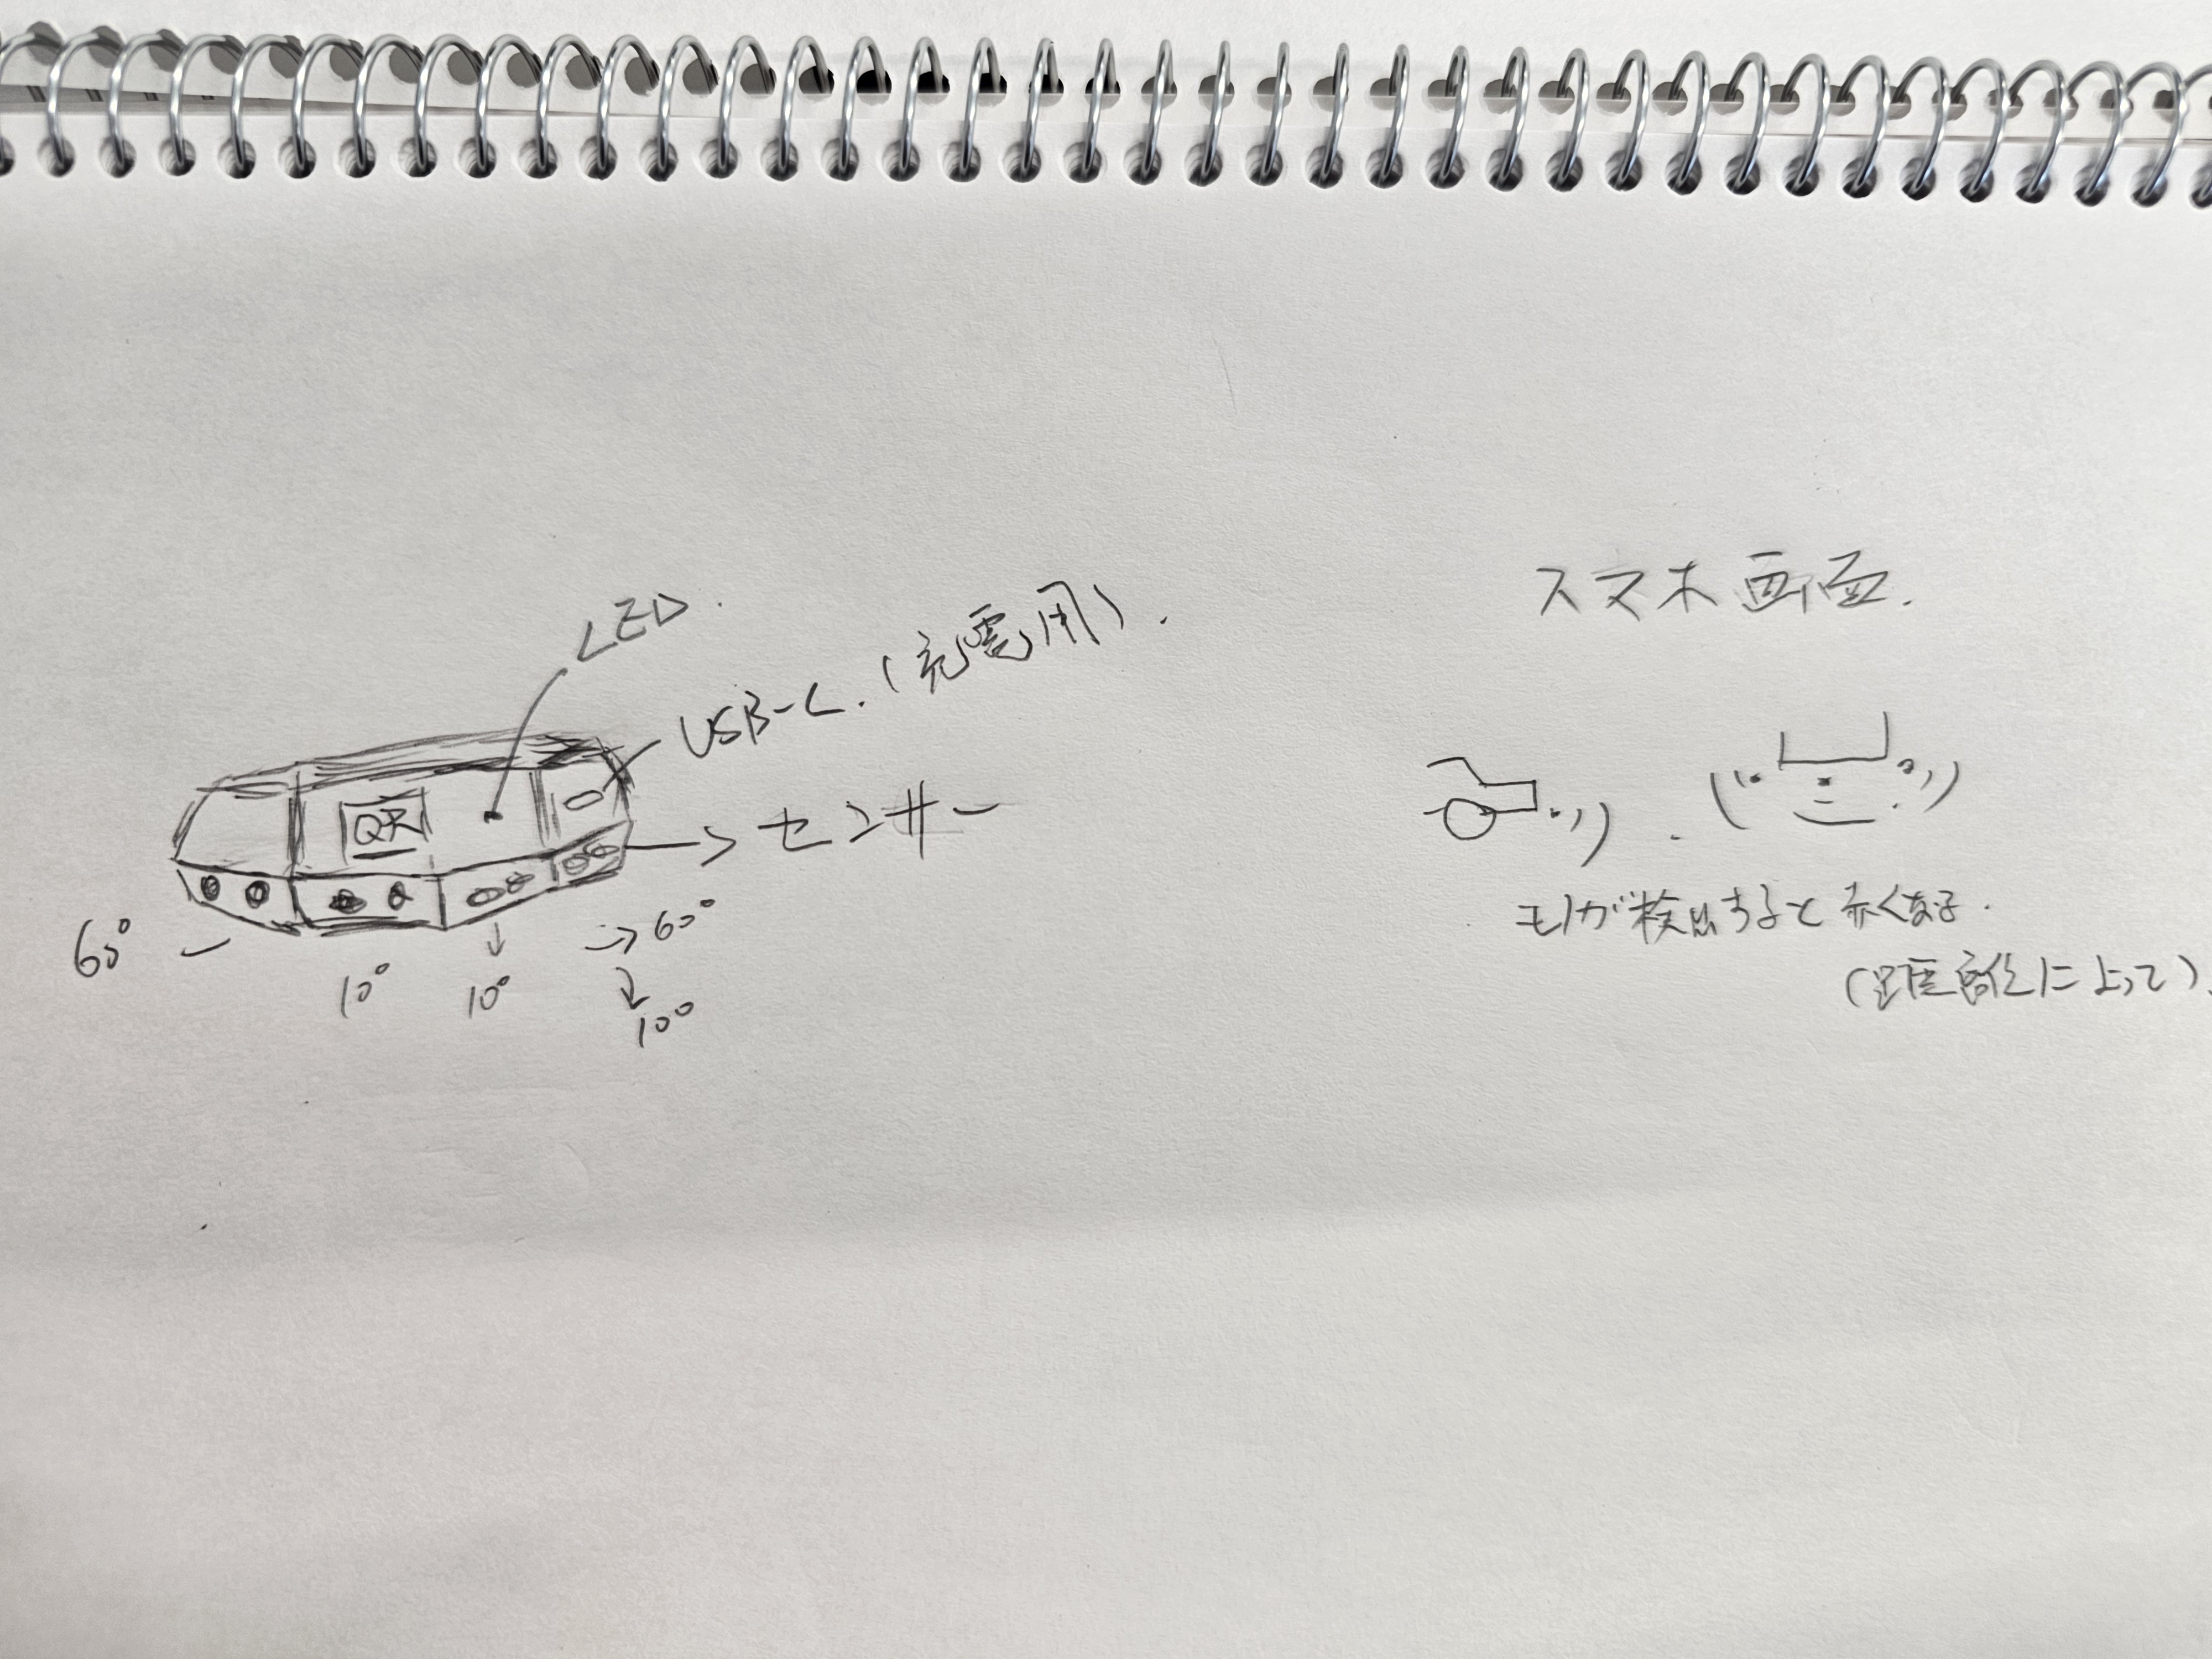 LED.
USB-C.（充電用）.
QR
→ センサー
60°
10°
10°
→ 60°
↓
10°
スマホ画面.
モノが検出すると赤くなる.
（距離によって）.